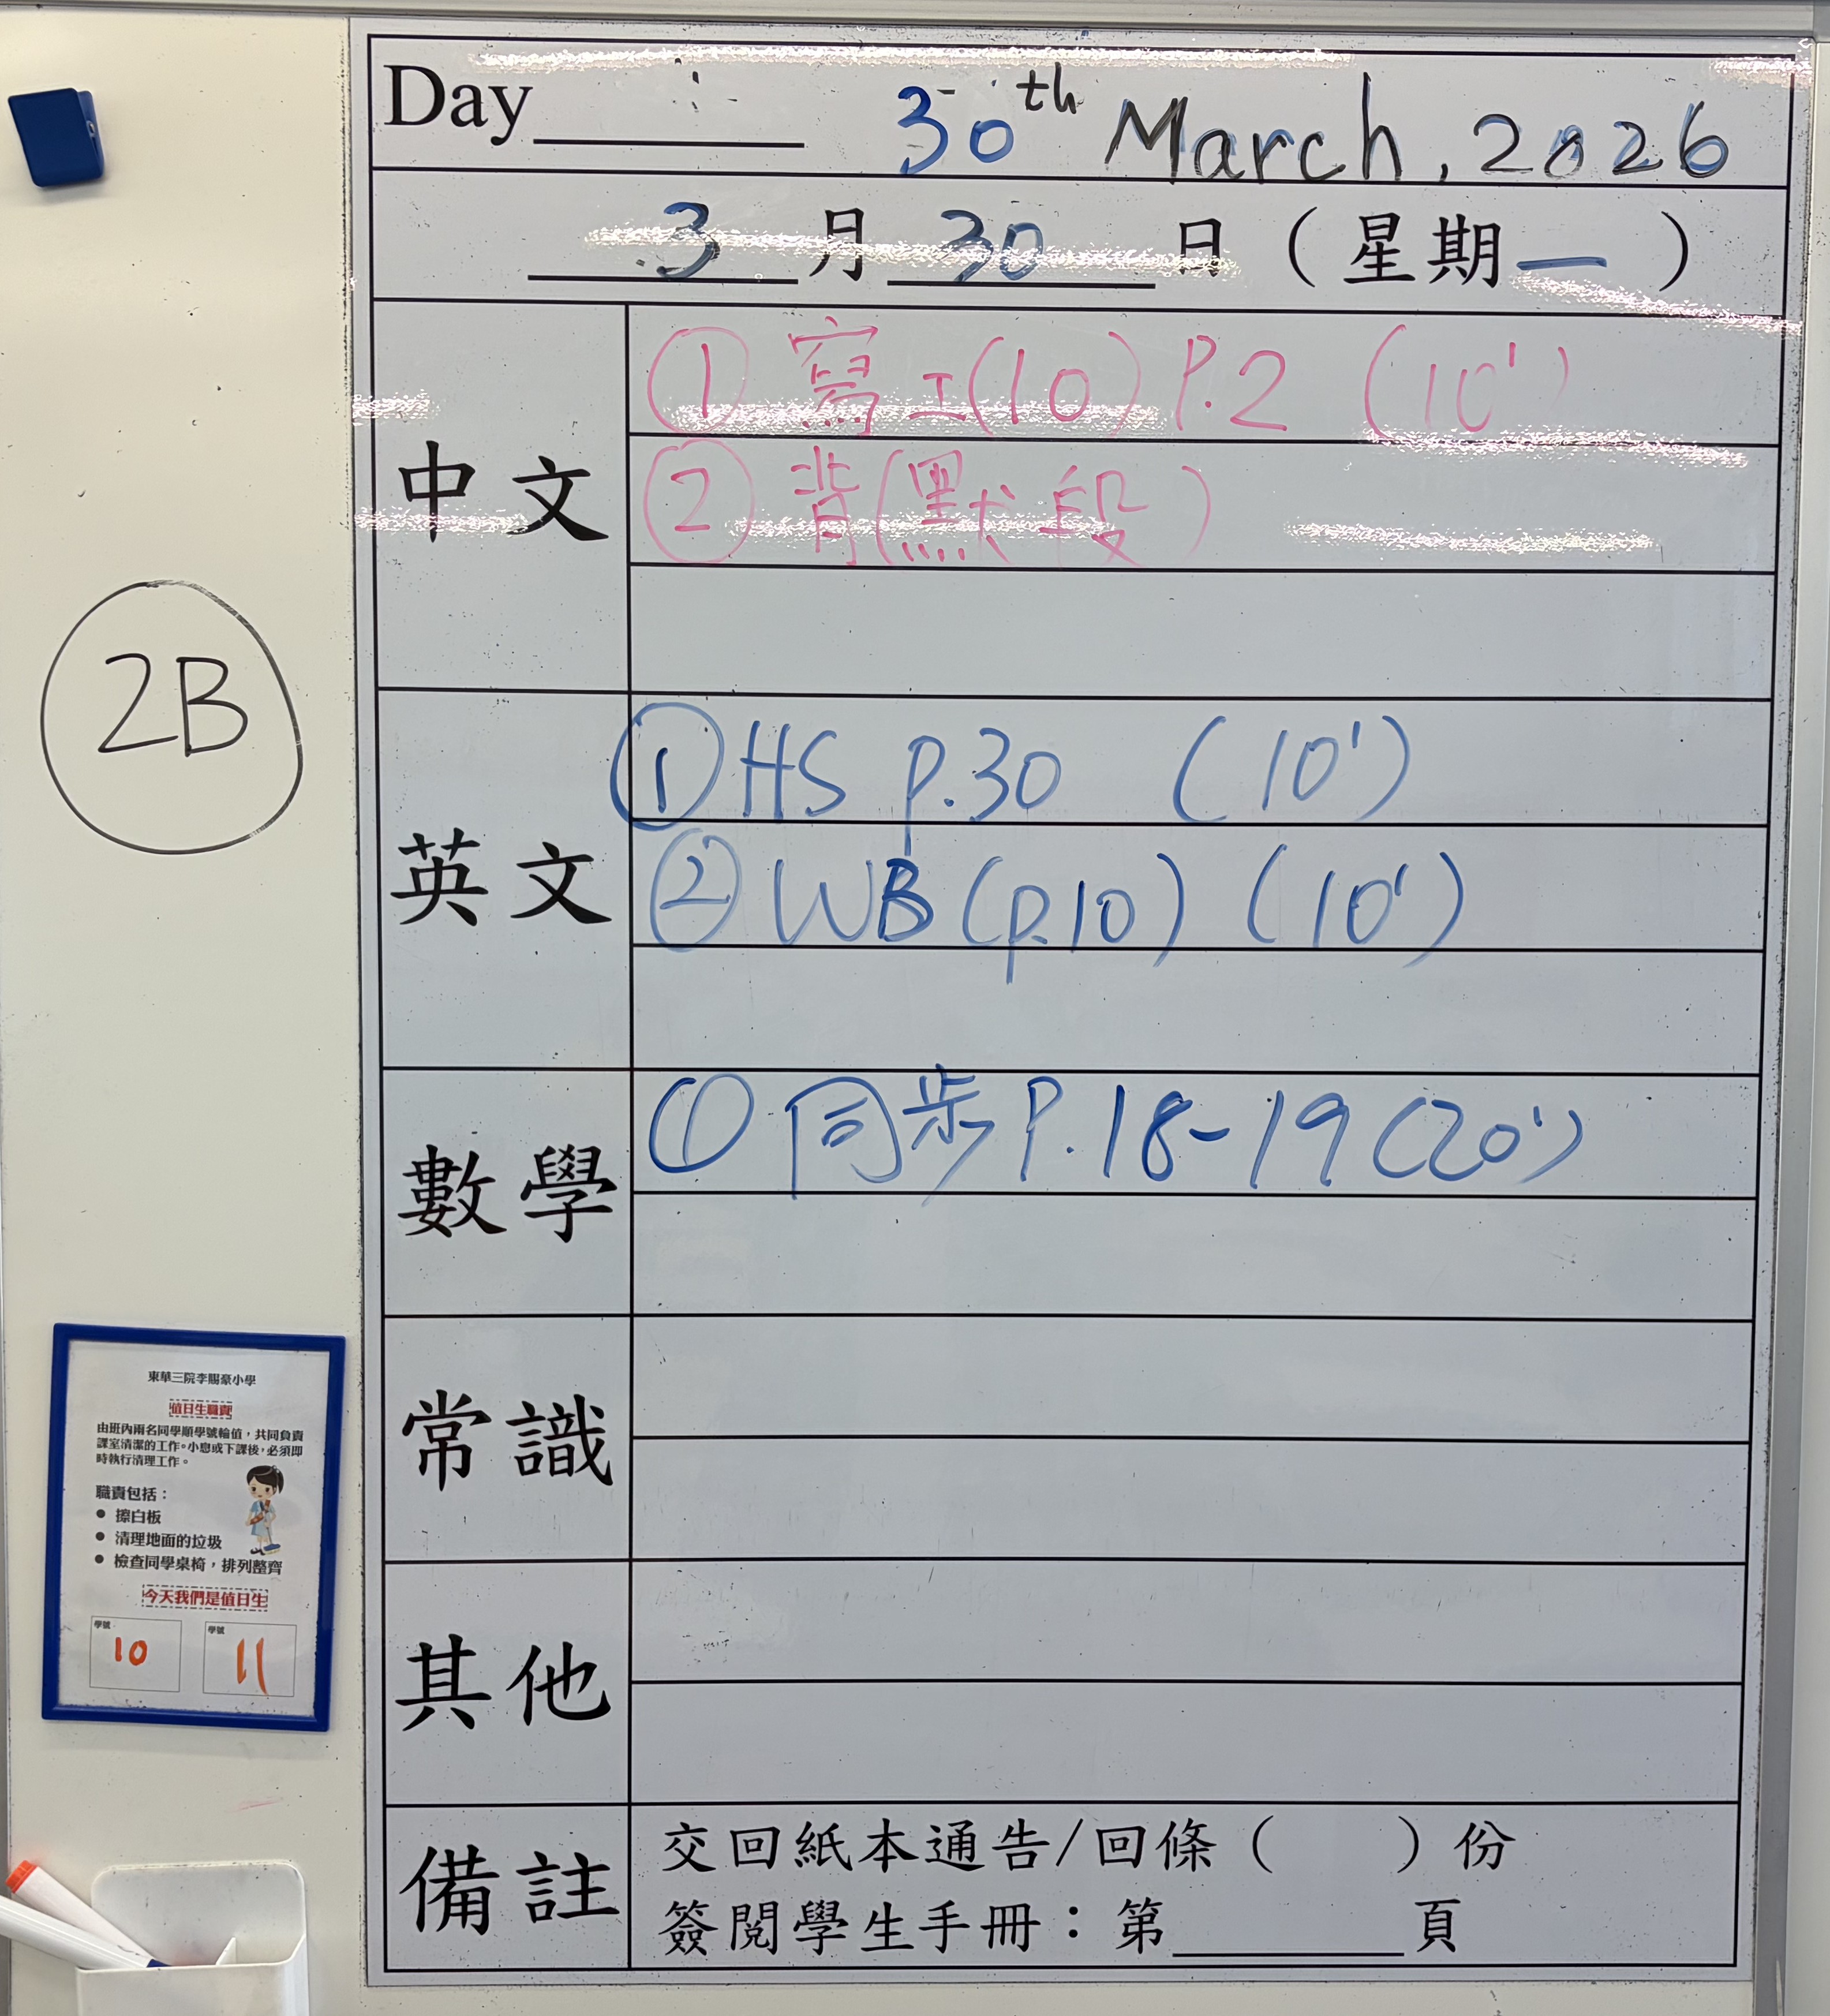 Day 30th March, 2026
3 月 30 日 (星期一)
中文
① 寫工(10) P.2 (10')
② 背(默段)
2B
英文
① HS p.30 (10')
② WB (p.10) (10')
數學
① 同步 P.18-19 (20')
常識
其他
備註
交回紙本通告/回條( )份
簽閱學生手冊：第______頁
東華三院李賜豪小學
值日生職責
由班內兩名同學順學號輪值，共同負責
課室清潔的工作。小息或下課後，必須即
時執行清理工作。
職責包括：
● 擦白板
● 清理地面的垃圾
● 檢查同學桌椅，排列整齊
今天我們是值日生
學號 10
學號 11